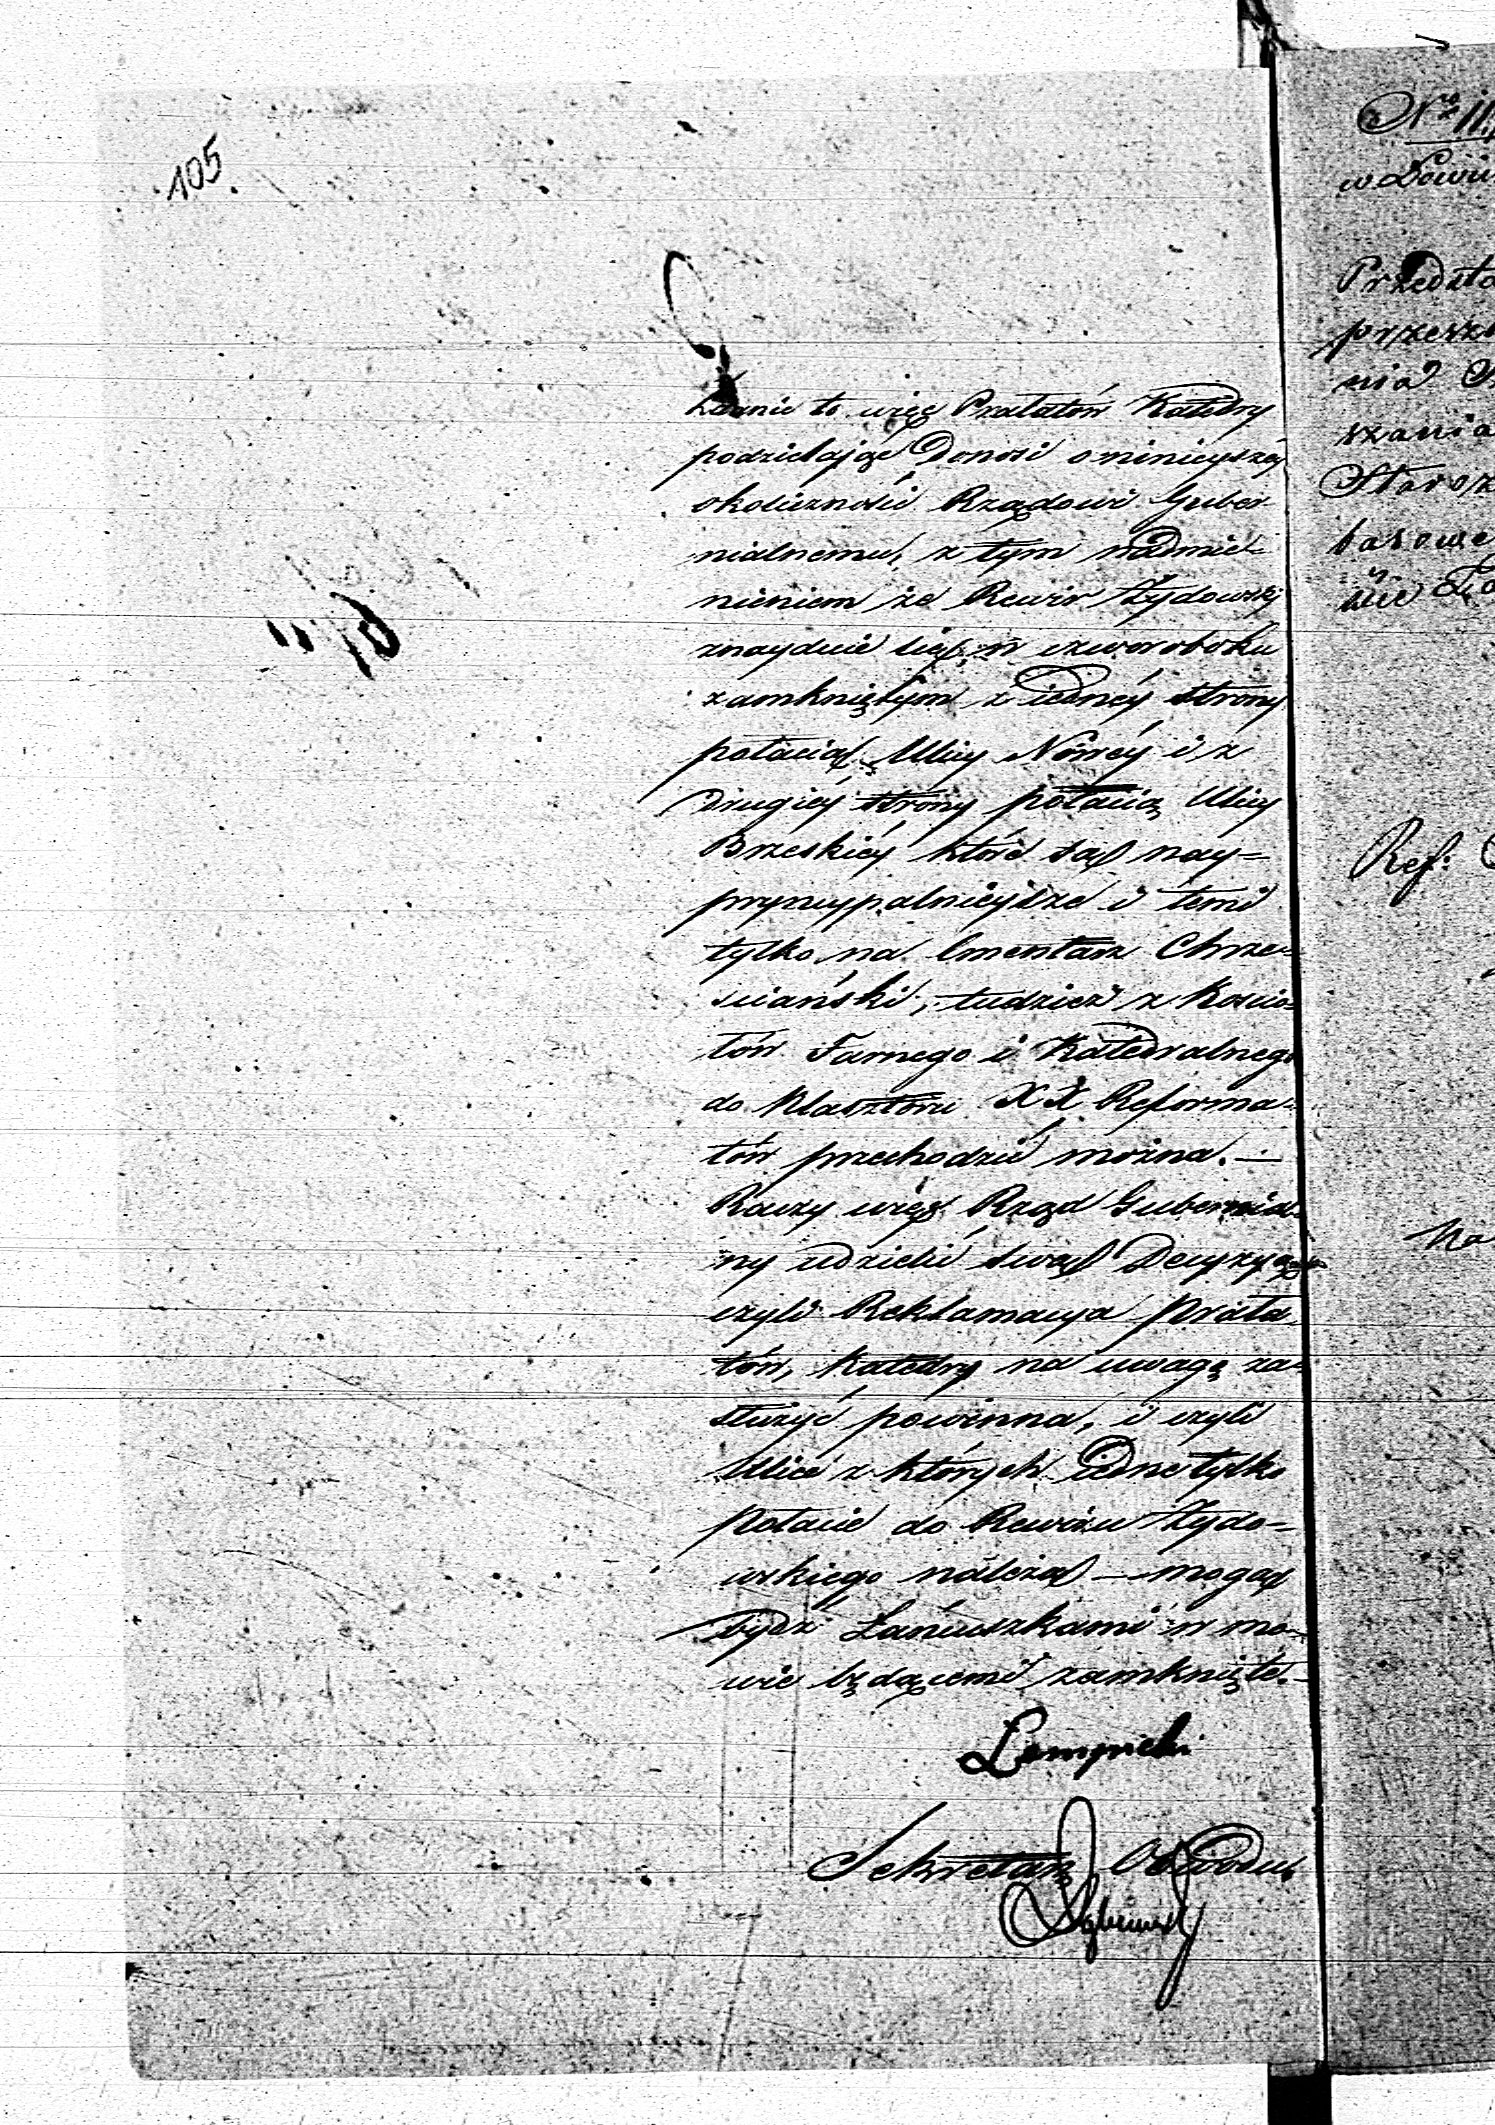 105.
Zdanie to więc Prałatów Katedry
podzielając Donosi o ninieyszéy
okoliczności Rządowi Guber-
nialnemu, z tym nadmie-
nieniem że Rewir Żydowski
znayduie się w czworoboku
zamkniętym z iednéy strony
połacią Ulicy Nowéy i z
drugiéy strony połacią Ulicy
Brzeskiéy które są nay=
pryncypalnieysze i temi
tylko na Cmentarz Chrze-
sciański, tudzież z Koscio-
łów Farnego i Katedralnego
do Klasztoru XX Reforma-
tów przechodzić można. —
Raczy więc Rząd Gubernial-
ny udzielić swą Decyzyą
czyli Reklamacya Prała-
tów, Katedry na uwagę za-
służyć powinna, i czyli
Ulice z których iedne tylko
Połacie do Rewiru Żydo-
wskiego należą — mogą
bydź Łańcuszkami w mo-
wie będącemi zamknięte. —
Łempicki
Sekretarz Obwodu
Nº 11
w Łowi
Przedsta
przeszł
nia
szania
Staroz
basowe
Ref:
Na